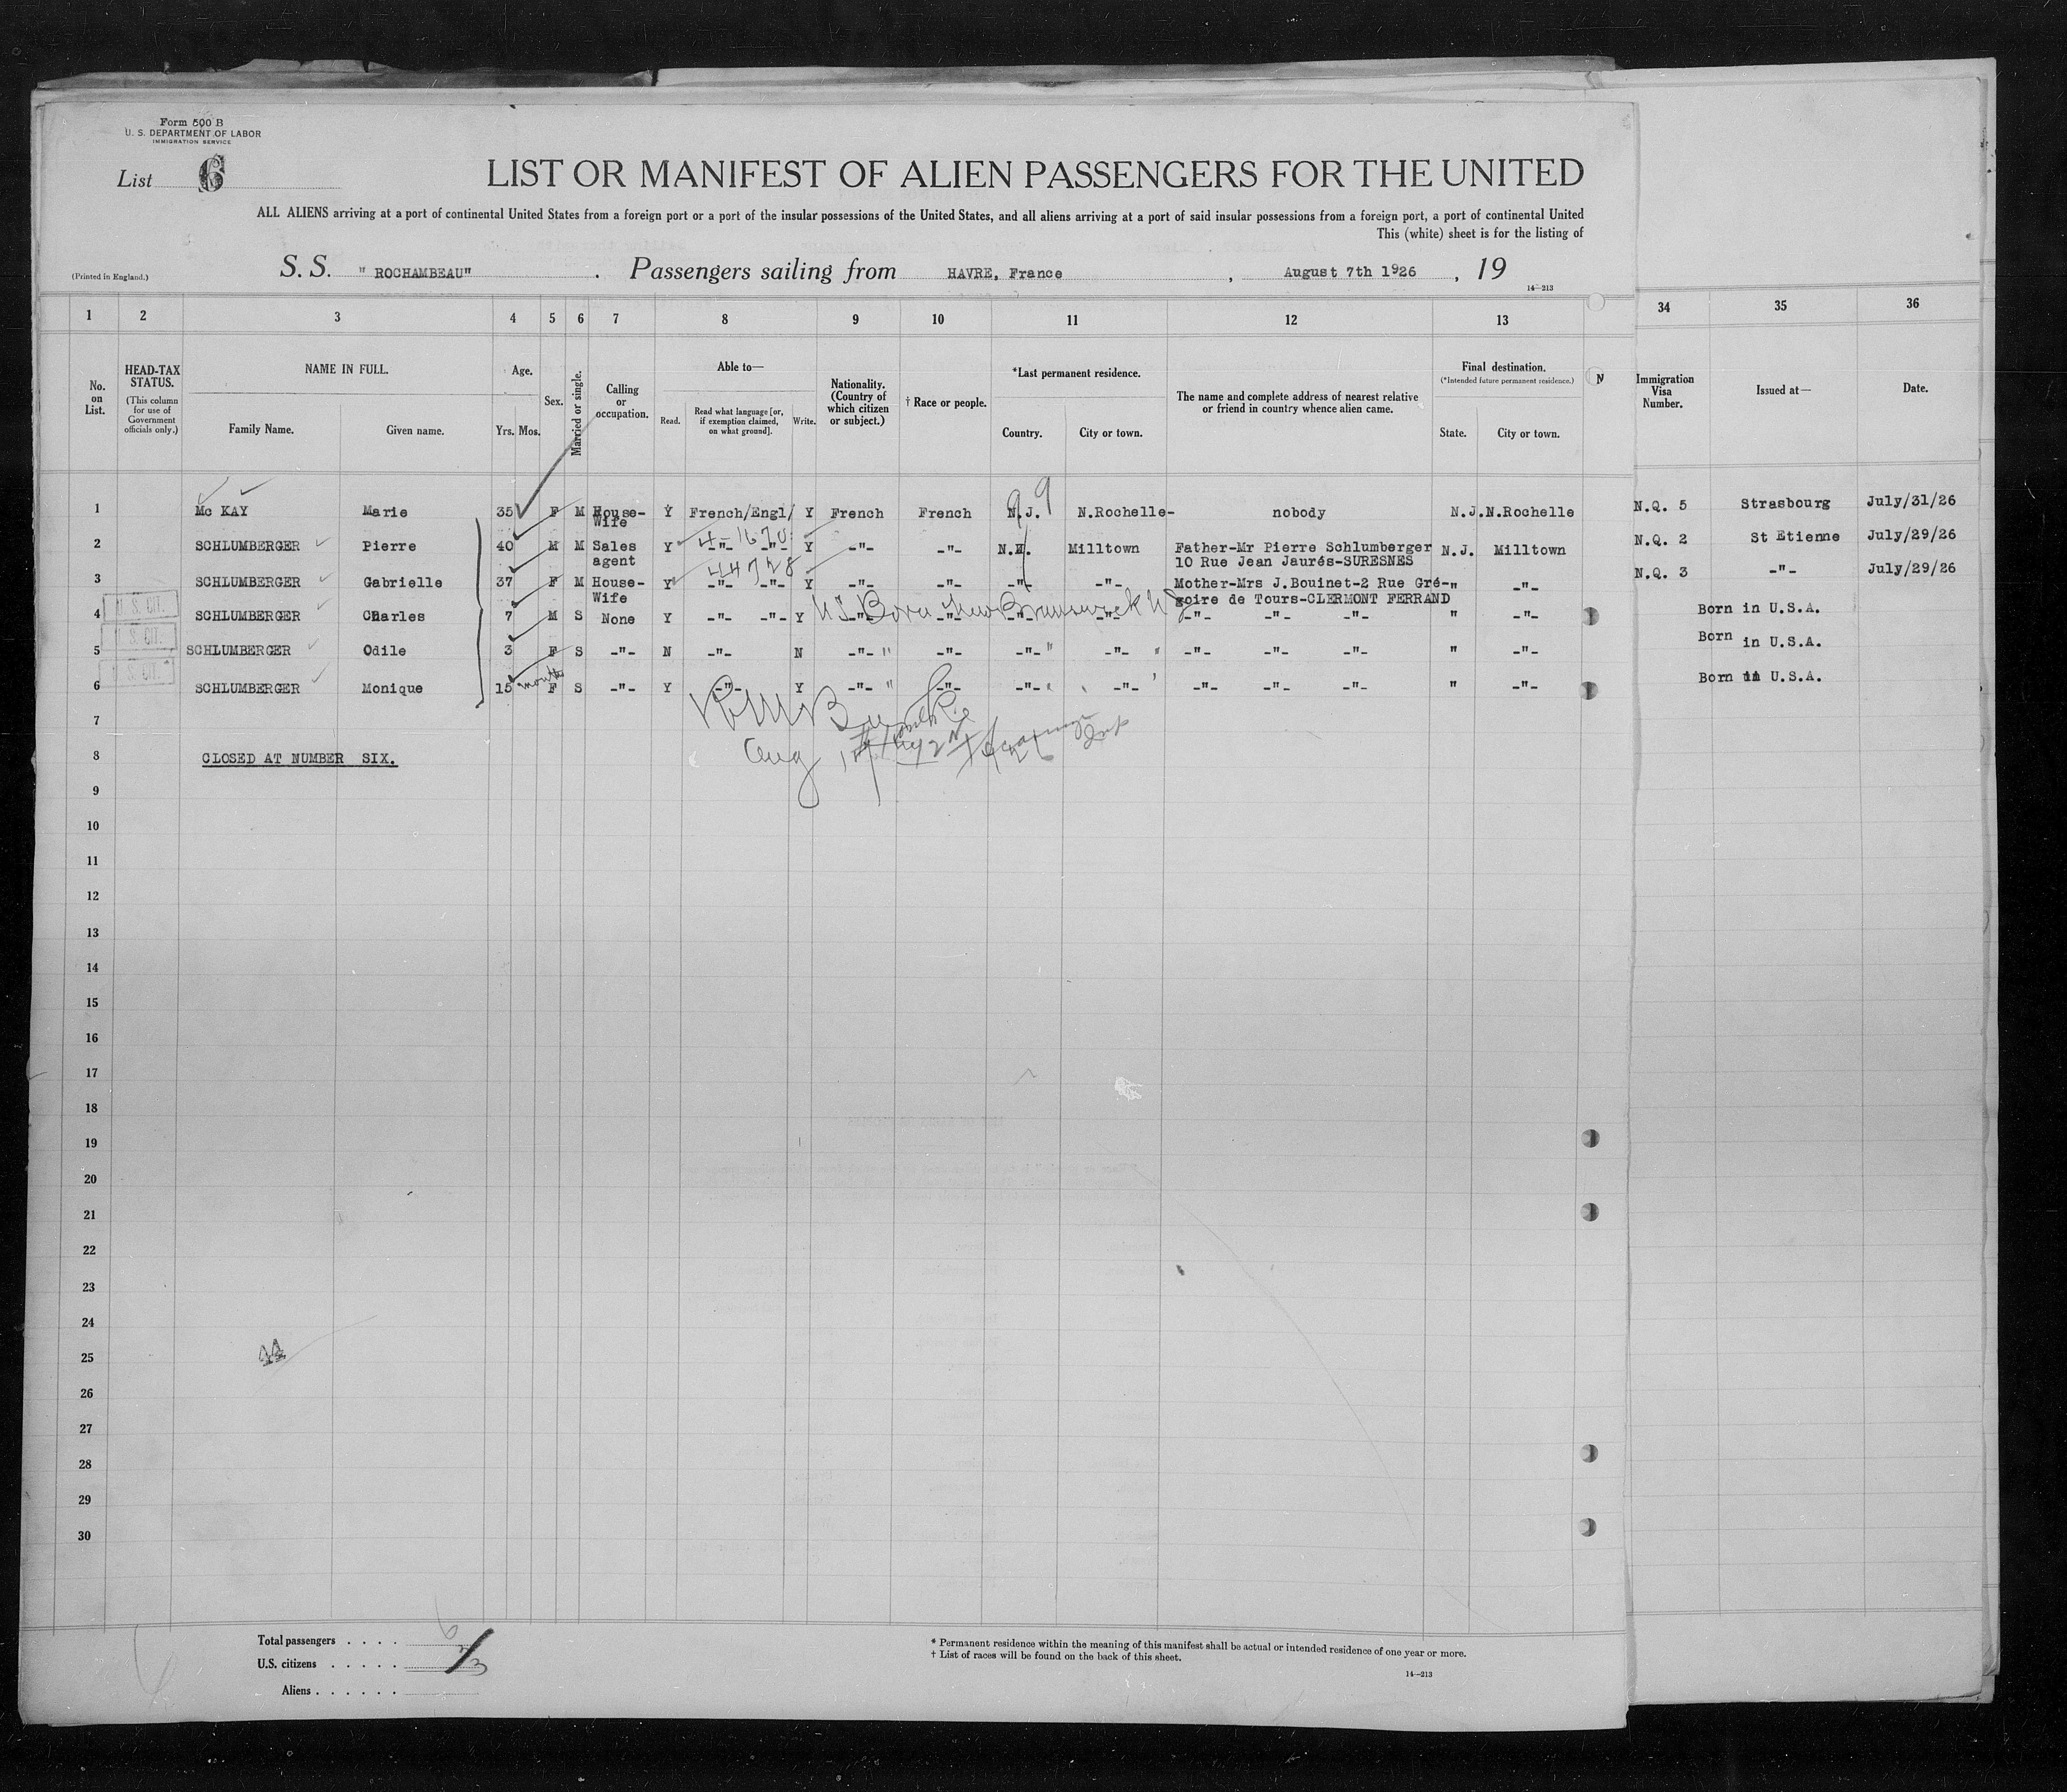 Form 500 B
U. S. DEPARTMENT OF LABOR
IMMIGRATION SERVICE
List 6
LIST OR MANIFEST OF ALIEN PASSENGERS FOR THE UNITED
ALL ALIENS arriving at a port of continental United States from a foreign port or a port of the insular possessions of the United States, and all aliens arriving at a port of said insular possessions from a foreign port, a port of continental United
This (white) sheet is for the listing of
(Printed in England.)
S. S. " ROCHAMBEAU" . Passengers sailing from HAVRE, France , August 7th 1926 , 19
14—213
1 2 3 4 5 6 7 8 9 10 11 12 13 34 35 36
No. on List.
HEAD-TAX STATUS.
(This column for use of Government officials only.)
NAME IN FULL.
Family Name. Given name.
Age.
Yrs. Mos.
Sex.
Married or single.
Calling or occupation.
Able to—
Read. Read what language [or, if exemption claimed, on what ground]. Write.
Nationality. (Country of which citizen or subject.)
† Race or people.
*Last permanent residence.
Country. City or town.
The name and complete address of nearest relative or friend in country whence alien came.
Final destination.
(*Intended future permanent residence.)
State. City or town.
N
Immigration Visa Number.
Issued at—
Date.
1 Mc KAY Marie 35 F M House-Wife Y French/Engl/ Y French French N.J. N.Rochelle- nobody N.J. N.Rochelle N.Q. 5 Strasbourg July/31/26
99
4-1670
2 SCHLUMBERGER Pierre 40 M M Sales agent Y -"- -"- Y -"- -"- N.J. Milltown Father-Mr Pierre Schlumberger N.J. Milltown N.Q. 2 St Etienne July/29/26
10 Rue Jean Jaurés-SURESNES
44728
3 SCHLUMBERGER Gabrielle 37 F M House-Wife Y -"- -"- Y -"- -"- -"- -"- Mother-Mrs J.Bouinet-2 Rue Gré- " -"- N.Q. 3 -"- July/29/26
goire de Tours-CLERMONT FERRAND
U. S. CIT.
US Born New Brunswick NJ
4 SCHLUMBERGER Charles 7 M S None Y -"- -"- Y -"- -"- -"- -"- -"- -"- -"- " -"- Born in U.S.A.
U. S. CIT.
5 SCHLUMBERGER Odile 3 F S -"- N -"- N -"- " -"- -"- " -"- " -"- -"- -"- " -"- Born in U.S.A.
U. S. CIT.
6 SCHLUMBERGER Monique 15 months F S -"- Y -"- Y -"- " -"- -"- " -"- ' -"- -"- -"- " -"- Born in U.S.A.
7
Aug
8 CLOSED AT NUMBER SIX.
9
10
11
12
13
14
15
16
17
18
19
20
21
22
23
24
25
26
27
28
29
30
Total passengers . . . . 6
U.S. citizens . . . . . 3
Aliens . . . . . .
* Permanent residence within the meaning of this manifest shall be actual or intended residence of one year or more.
† List of races will be found on the back of this sheet.
14—213